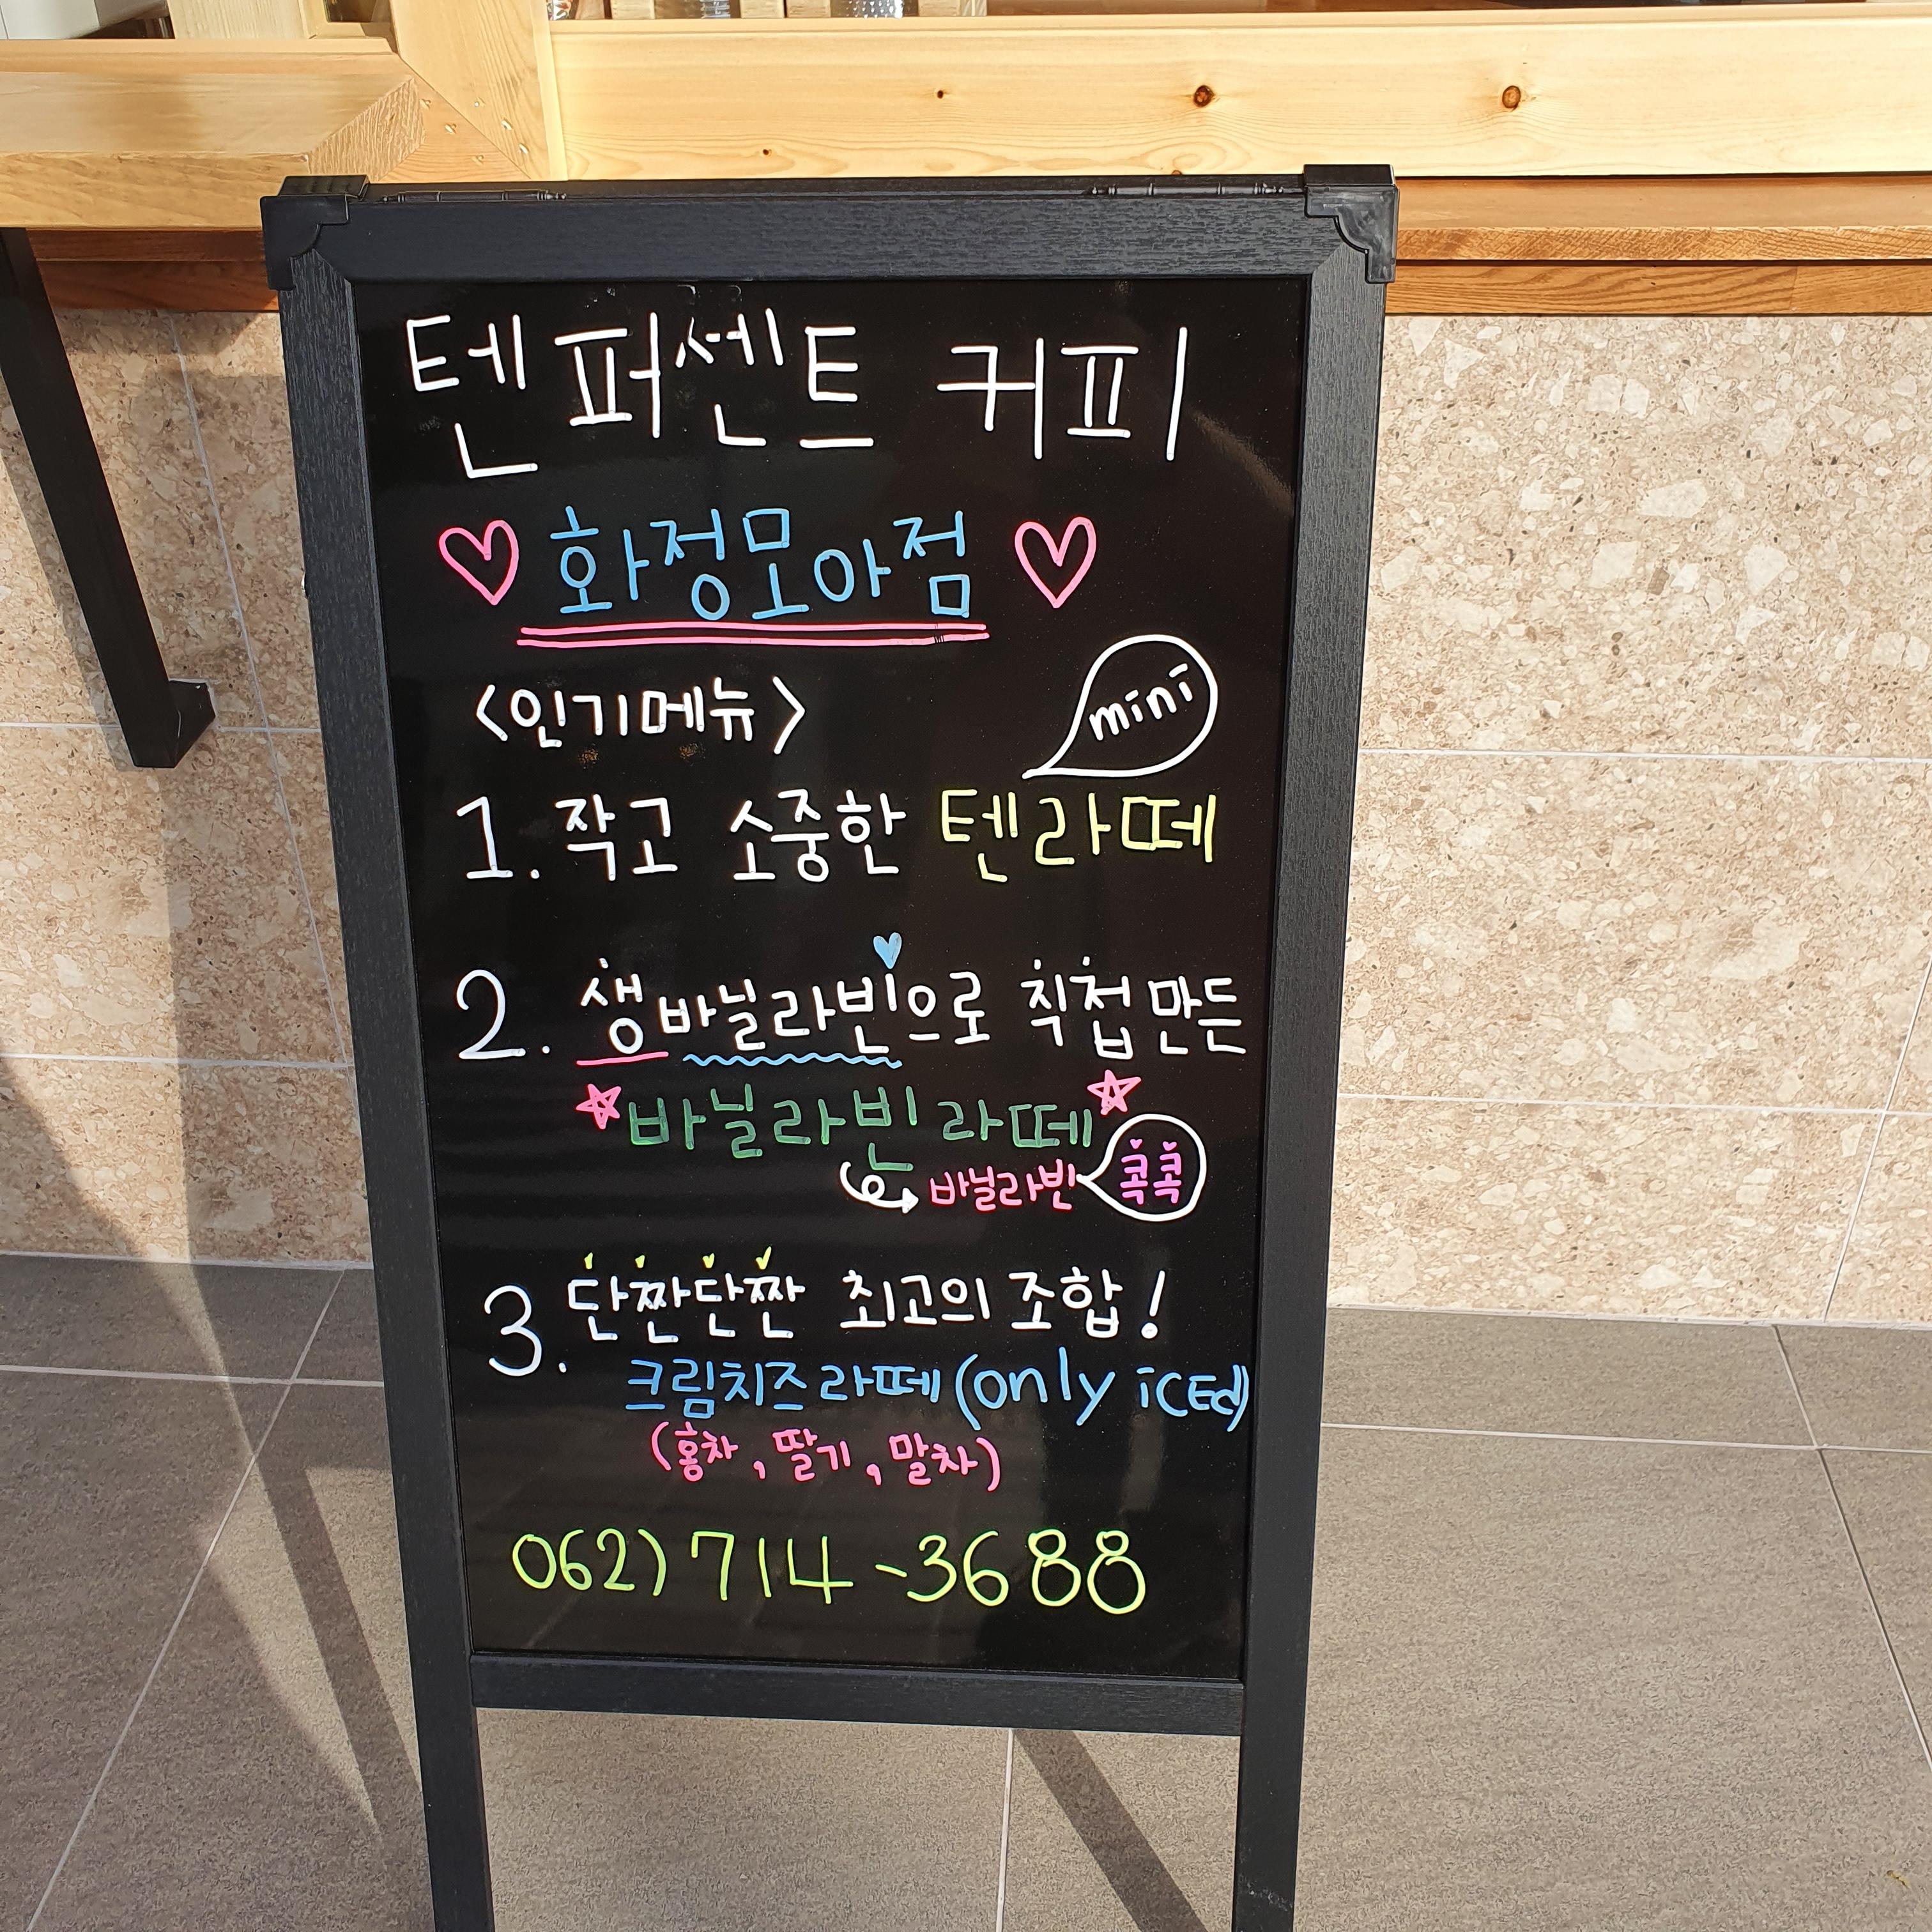 텐퍼센트 커피
♡ 화정모아점 ♡
<인기메뉴>
mini
1. 작고 소중한 텐라떼
2. 생바닐라빈으로 직접 만든
☆바닐라빈 라떼☆
바닐라빈 콕콕
3. 단짠단짠 최고의 조합!
크림치즈 라떼 (only iced)
(홍차, 딸기, 말차)
062) 714-3688